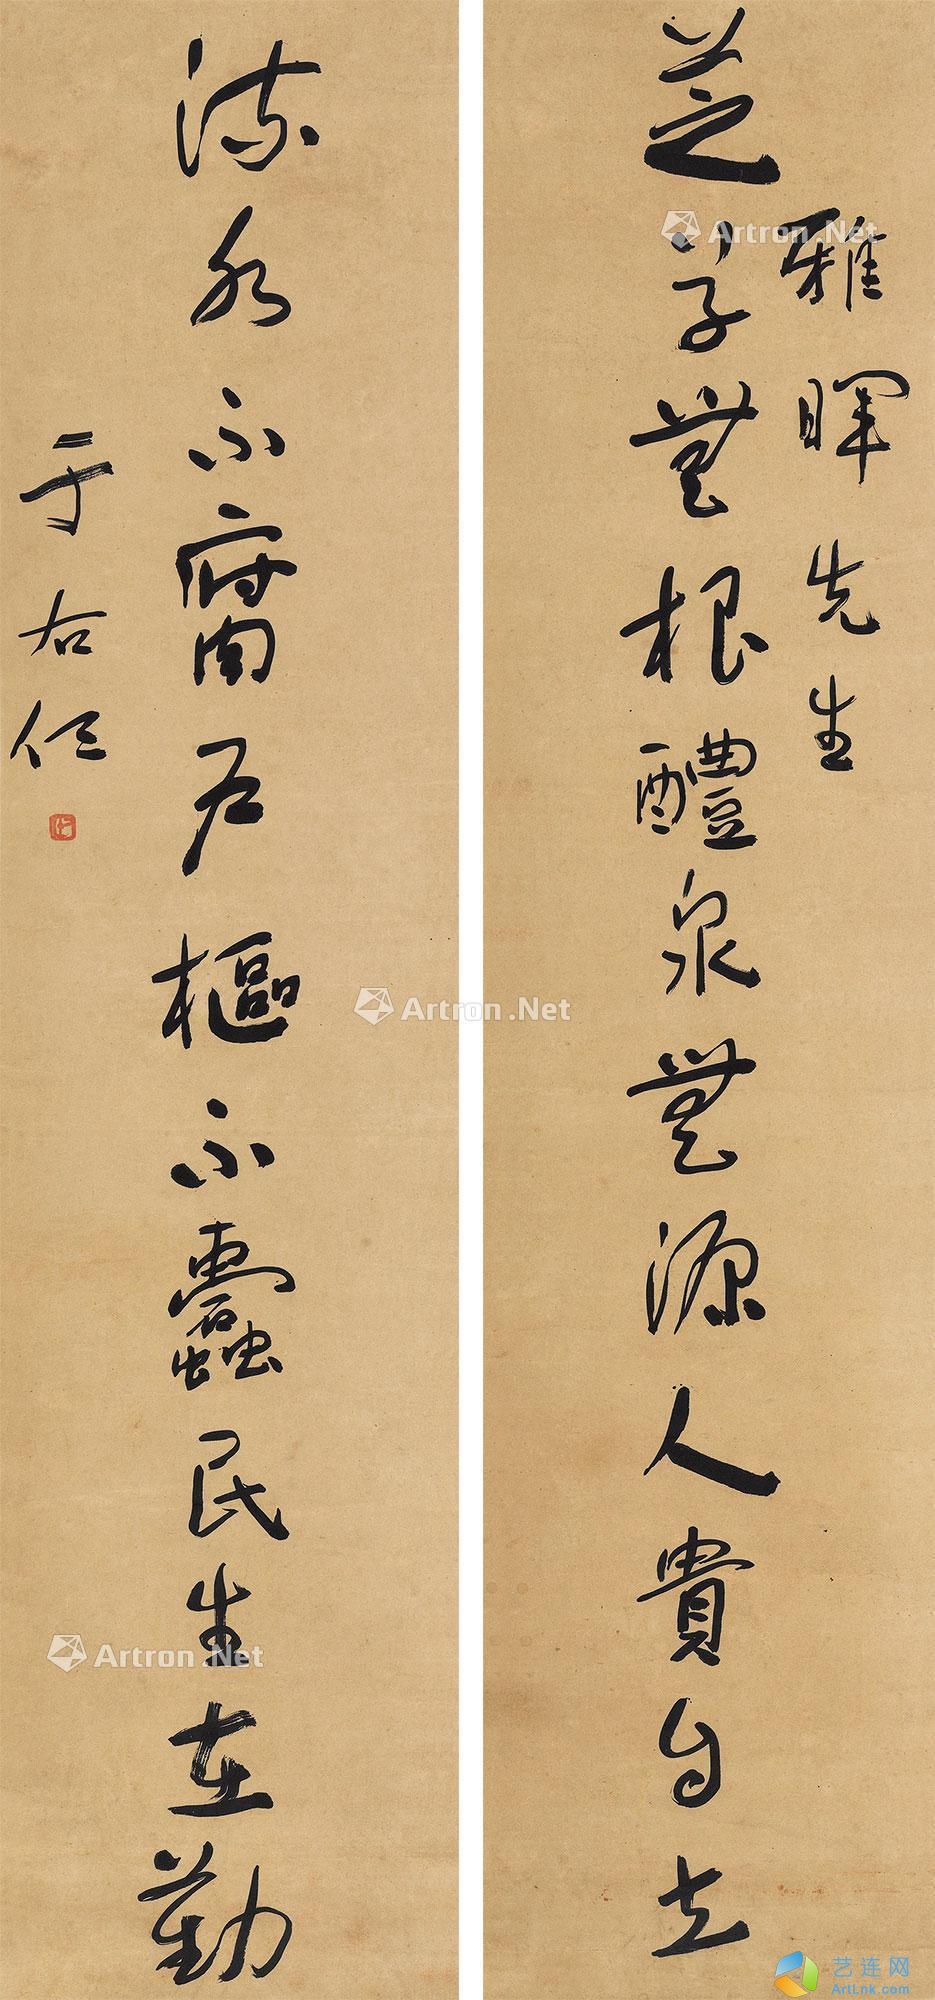 芝草無根醴泉無源人貴自立
雅暉先生
流水不腐戶樞不蠹民生在勤
于右任
Artron.Net
Artron.Net
Artron.Net
艺连网
ArtLnk.com